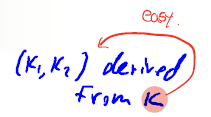 easy.
(K₁, K₂) derived
from K